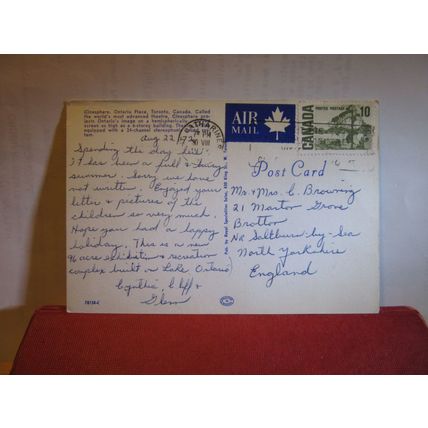 Cinesphere, Ontario Place, Toronto, Canada. Called
the world's most advanced theatre, Cinesphere pro-
jects Ontario's image on a hemispheric
screen as high as a 6-storey building. The
equipped with a 24-channel stereophonic sound sys-
tem.
Aug 22/72
Spending the day here.
It has been a full & busy
summer. Sorry we have
not written. Enjoyed your
letter & pictures of the
children so very much.
Hope you had a happy
holiday. This is a new
96 acre exhibition & recreation
complex built on Lake Ontario
Cynthia, Cliff &
Glenn
AIR
MAIL
CATHARINES
PM
VIII
CANADA
POSTES POSTAGE
10
Post Card
Mr. & Mrs. C. Browning
21 Marton Grove
Brotton
Nr Saltburn-by-Sea
North Yorkshire
England